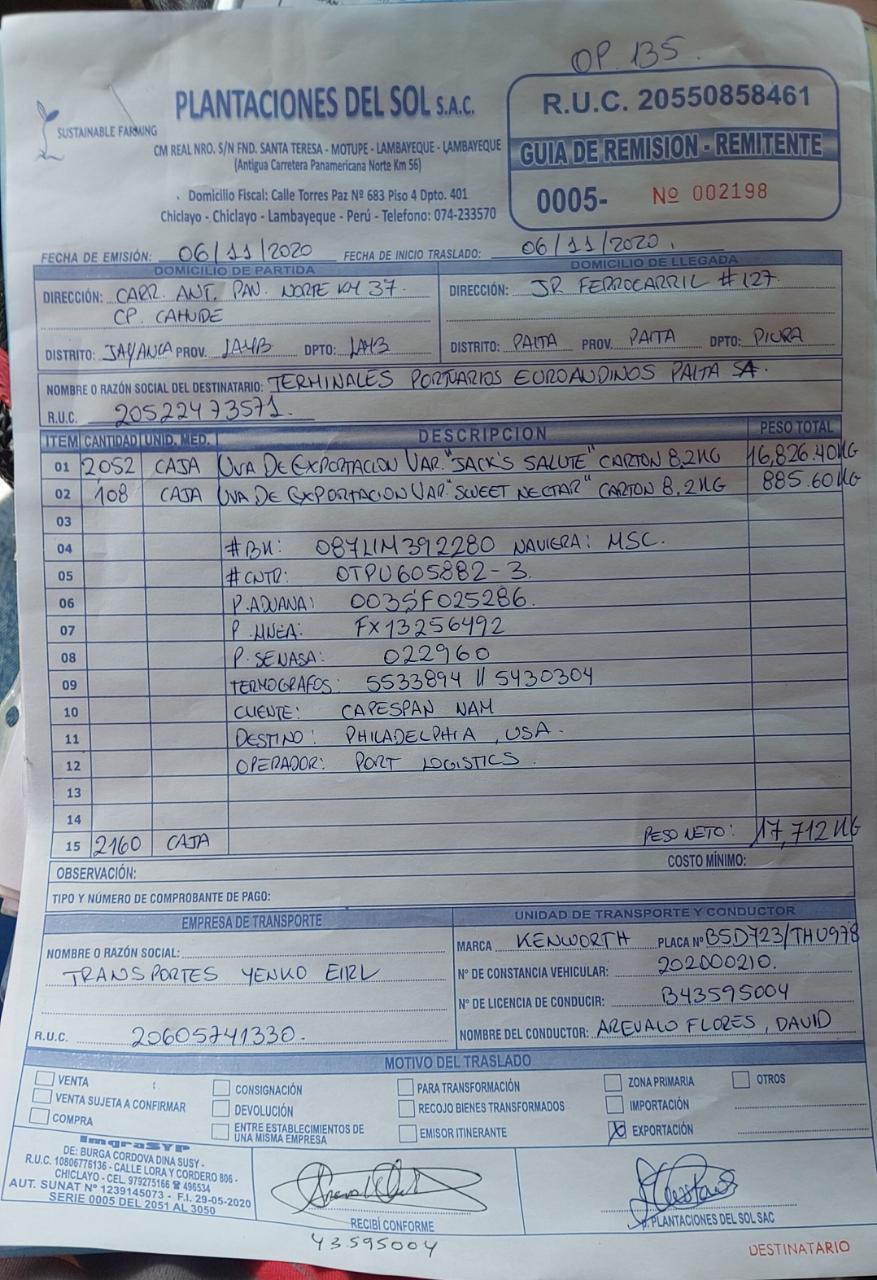 OP. 135.
SUSTAINABLE FARMING
PLANTACIONES DEL SOL S.A.C.
CM REAL NRO. S/N FND. SANTA TERESA - MOTUPE - LAMBAYEQUE - LAMBAYEQUE
(Antigua Carretera Panamericana Norte Km 56)
Domicilio Fiscal: Calle Torres Paz Nº 683 Piso 4 Dpto. 401
Chiclayo - Chiclayo - Lambayeque - Perú - Telefono: 074-233570
R.U.C. 20550858461
GUIA DE REMISION - REMITENTE
0005- Nº 002198
FECHA DE EMISIÓN: 06/11/2020 FECHA DE INICIO TRASLADO: 06/11/2020.
DOMICILIO DE PARTIDA DOMICILIO DE LLEGADA
DIRECCIÓN: CARR. ANT. PAN. NORTE KM 37. DIRECCIÓN: JR FERROCARRIL #127.
CP. CAHUDE
DISTRITO: JAYANCA PROV. LAMB DPTO: LAMB DISTRITO: PAITA PROV. PAITA DPTO: PIURA
NOMBRE O RAZÓN SOCIAL DEL DESTINATARIO: TERMINALES PORTUARIOS EUROANDINOS PAITA SA.
R.U.C. 20522473571.
ITEM CANTIDAD UNID. MED. DESCRIPCION PESO TOTAL
01 2052 CAJA UVA DE EXPORTACION VAR. "JACK'S SALUTE" CARTON 8,2KG 16,826.40KG
02 108 CAJA UVA DE EXPORTACION VAR. "SWEET NECTAR" CARTON 8.2KG 885.60KG
03
04 #BK: 087LIM392280 NAVIERA: MSC.
05 #CNTR: OTPU605882-3.
06 P.ADUANA: 0035F025286.
07 P. LINEA: FX13256492
08 P. SENASA: 022960
09 TERMOGRAFOS: 5533894 // 5430304
10 CLIENTE: CAPESPAN NAM
11 DESTINO: PHILADELPHIA, USA.
12 OPERADOR: PORT LOGISTICS.
13
14
15 2160 CAJA PESO NETO: 17,712KG
OBSERVACIÓN: COSTO MÍNIMO:
TIPO Y NÚMERO DE COMPROBANTE DE PAGO:
EMPRESA DE TRANSPORTE UNIDAD DE TRANSPORTE Y CONDUCTOR
NOMBRE O RAZÓN SOCIAL: MARCA KENWORTH PLACA Nº B5D723/THU978
TRANSPORTES YENKO EIRL Nº DE CONSTANCIA VEHICULAR: 202000210.
Nº DE LICENCIA DE CONDUCIR: B43595004
R.U.C. 20605741330. NOMBRE DEL CONDUCTOR: AREVALO FLORES, DAVID
MOTIVO DEL TRASLADO
VENTA CONSIGNACIÓN PARA TRANSFORMACIÓN ZONA PRIMARIA OTROS
VENTA SUJETA A CONFIRMAR DEVOLUCIÓN RECOJO BIENES TRANSFORMADOS IMPORTACIÓN
COMPRA ENTRE ESTABLECIMIENTOS DE EMISOR ITINERANTE X EXPORTACIÓN
UNA MISMA EMPRESA
ImgraSYP
DE: BURGA CORDOVA DINA SUSY -
R.U.C. 10806776136 - CALLE LORA Y CORDERO 806 -
CHICLAYO - CEL. 979275166 ☎ 496534
AUT. SUNAT Nº 1239145073 - F.I. 29-05-2020
SERIE 0005 DEL 2051 AL 3050
RECIBÍ CONFORME
43595004
p. PLANTACIONES DEL SOL SAC
DESTINATARIO